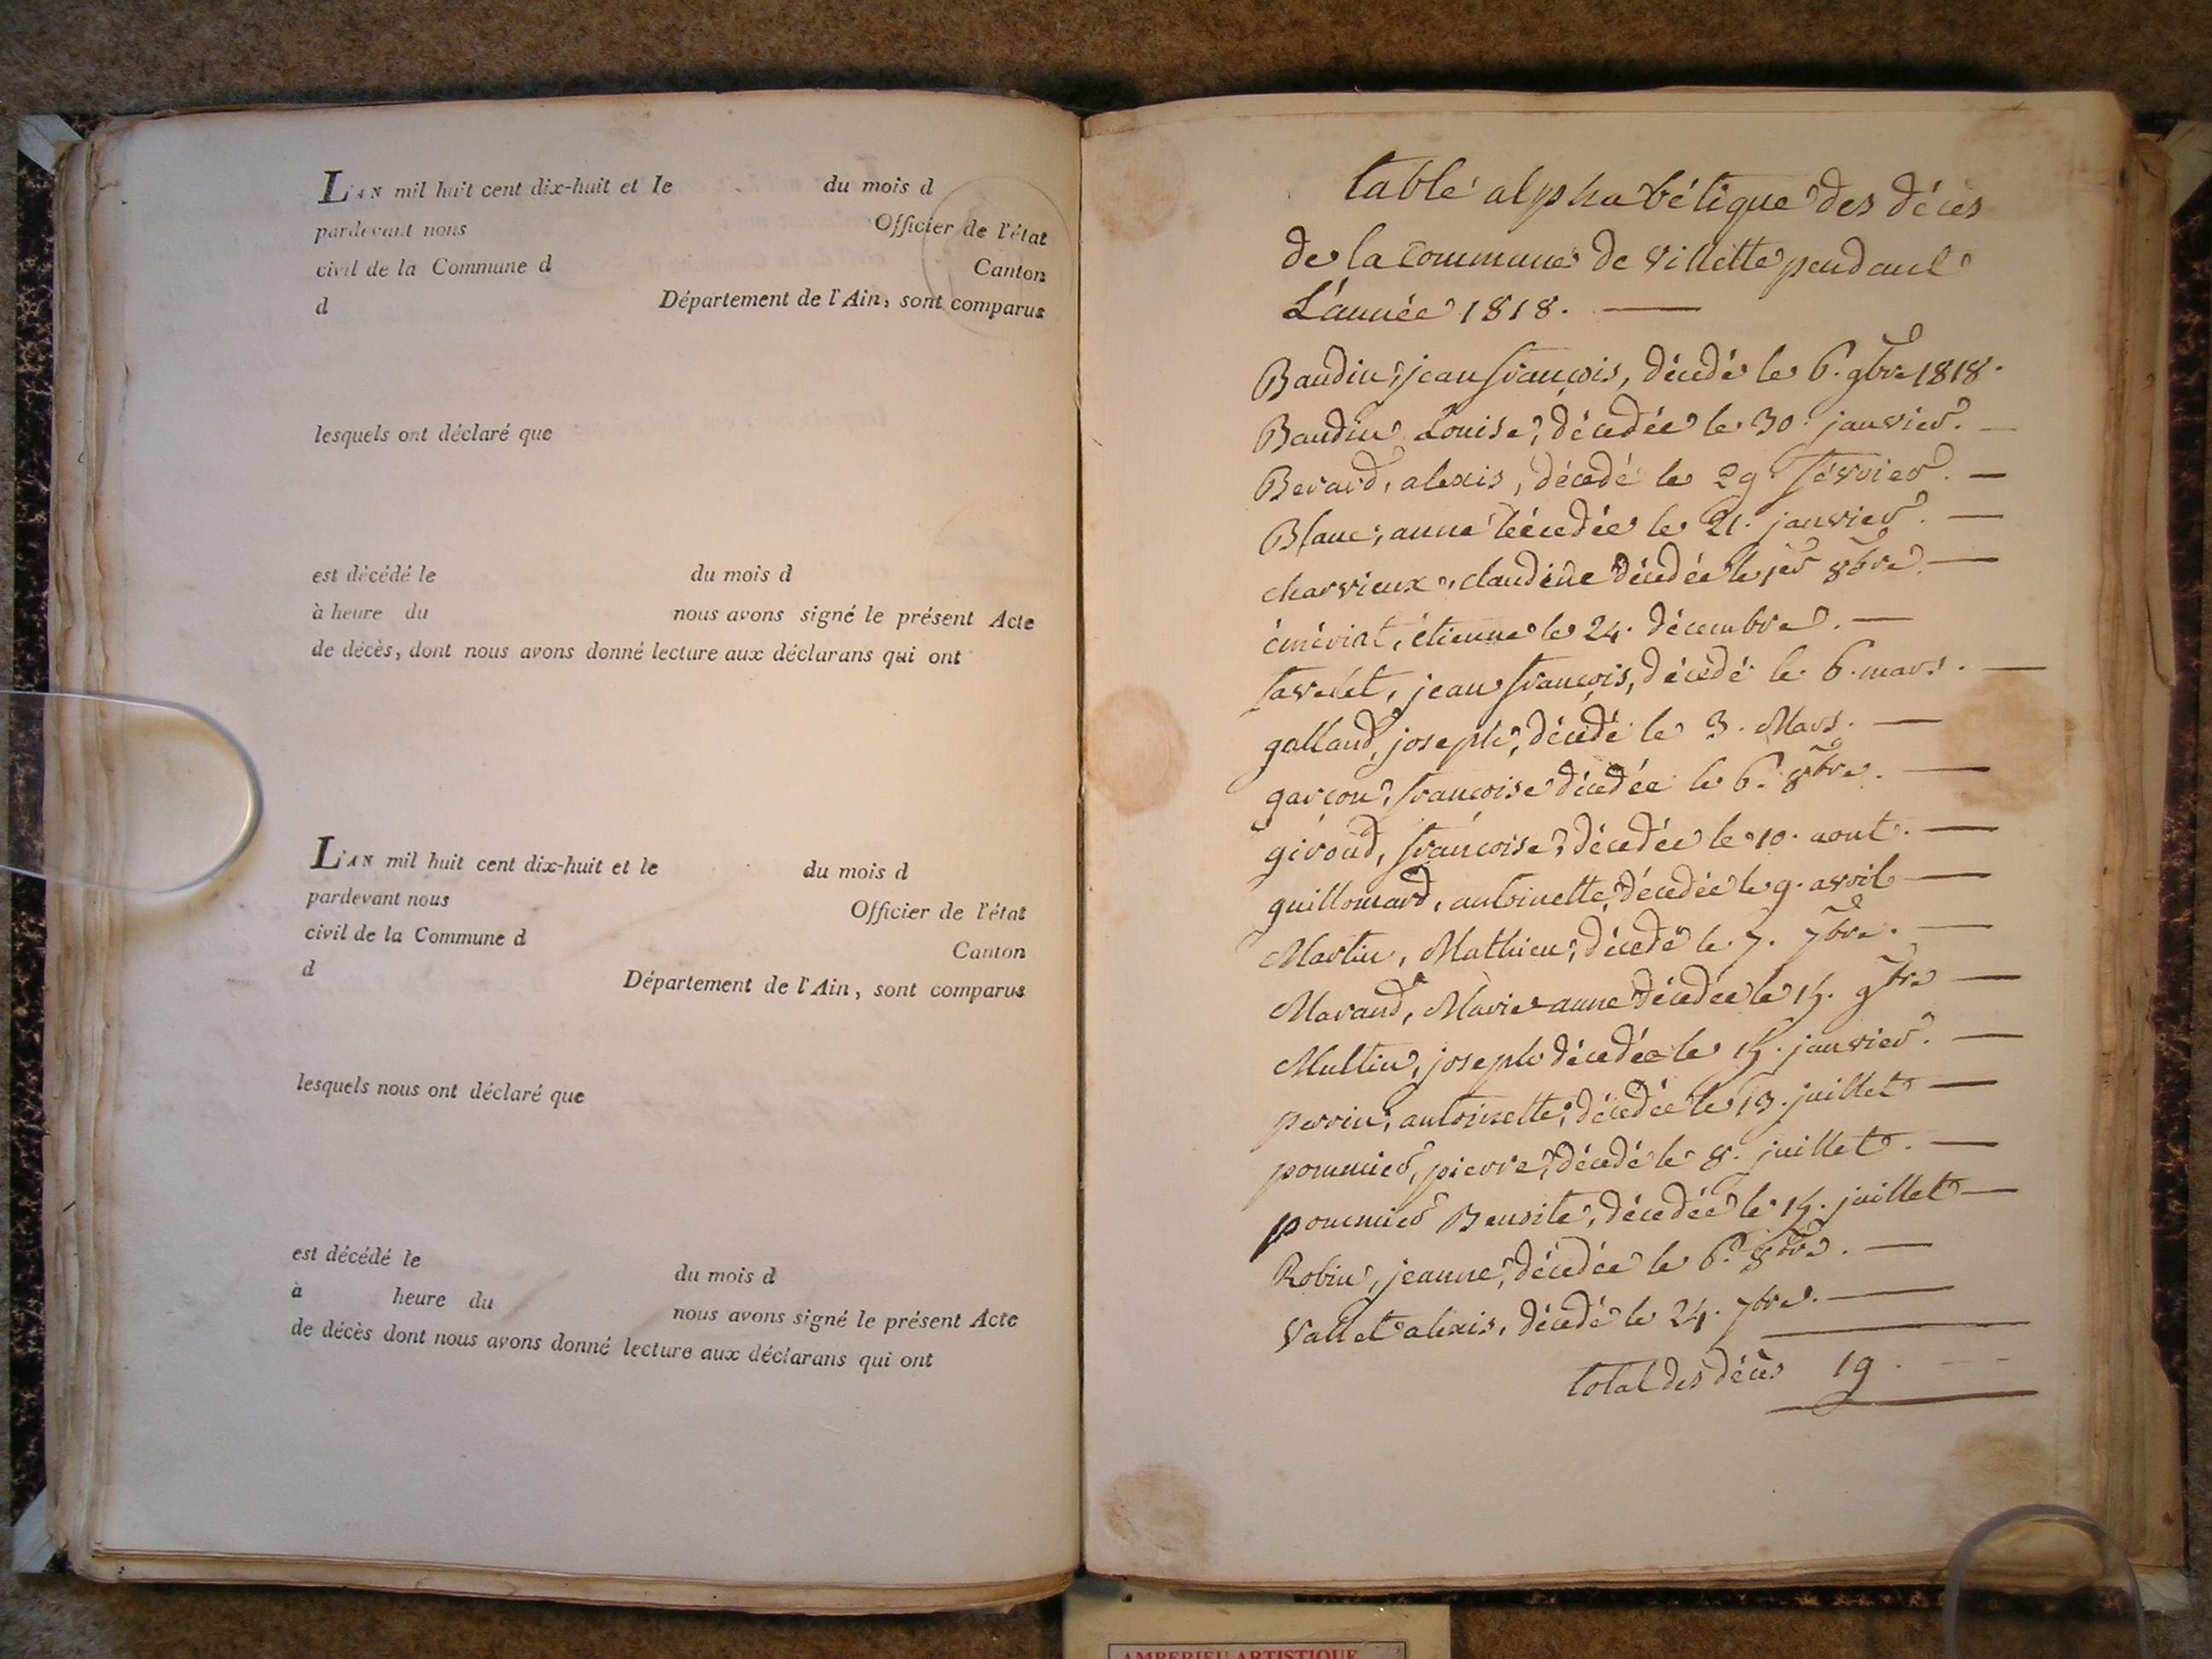 L'AN mil huit cent dix-huit et le du mois d
pardevant nous Officier de l'état
civil de la Commune d Canton
d Département de l'Ain, sont comparus
lesquels ont déclaré que
est décédé le du mois d
à heure du nous avons signé le présent Acte
de décès, dont nous avons donné lecture aux déclarans qui ont
L'AN mil huit cent dix-huit et le du mois d
pardevant nous Officier de l'état
civil de la Commune d Canton
d Département de l'Ain, sont comparus
lesquels nous ont déclaré que
est décédé le du mois d
à heure du nous avons signé le présent Acte
de décès dont nous avons donné lecture aux déclarans qui ont
table alphabétique des décès
de la Commune de Villette pendant
L'année 1818. —
Baudin, jean françois, décédé le 6. 9bre 1818.
Baudin Louise, décédée le 30. janvier. —
Berard, alexis, décédé le 29. février. —
Blanc, anne décédée le 21. janvier. —
charvieux, claudine décédée le 1er 8bre —
émériat, étienne le 24. décembre. —
favelet, jean françois, décédé le 6. mars. —
galland, joseph, décédé le 3. Mars. —
garçon, françoise décédée le 6. 8bre. —
giroud, françoise, décédée le 10. aout. —
guillomard, antoinette, décédée le 9. avril —
Martin, Mathieu, décédé le 7. 7bre. —
Marand, Marie anne décédée le 14. 9bre —
Multin, joseph décédé le 14. janvier. —
perrin, antoinette, décédée le 13. juillet —
pommier, pierre, décédé le 8. juillet. —
pommier Benoite, décédée le 14. juillet —
Robin, jeanne, décédée le 6. 8bre. —
Vallet alexis, décédé le 24. 7bre. —
total des décès 19.
AMBERIEU ARTISTIQUE